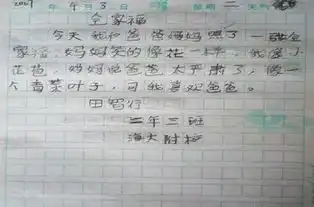 年 月 3 日 星期 二 天气
全家福
今天我和爸爸妈妈照了一张全
家福，妈妈笑的像花一样，我是小
花苞，妈妈说爸爸太严肃了，像一
个香菜叶子，可我喜欢爸爸。
田智行
二年三班
海大附校